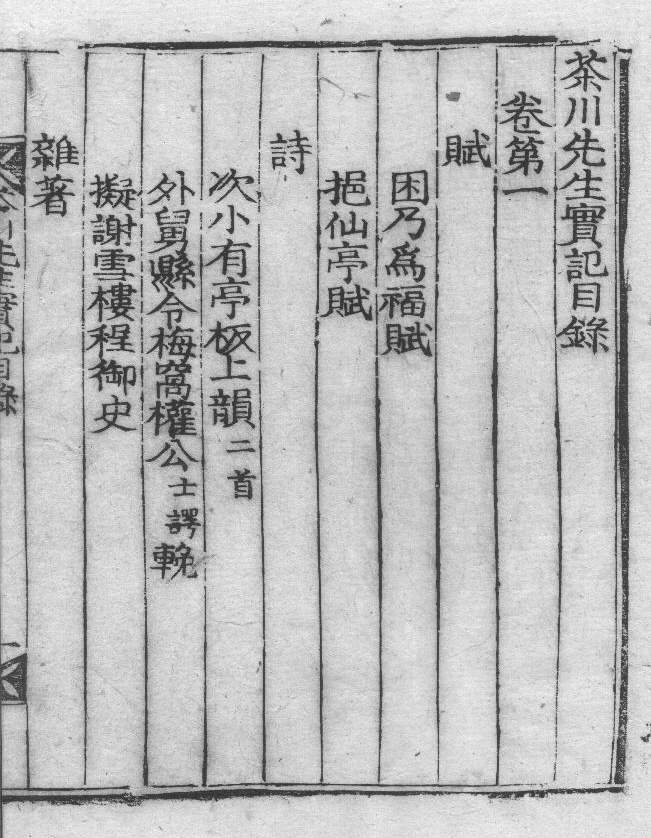 茶川先生實記目錄
卷第一
賦
困乃爲福賦
挹仙亭賦
詩
次小有亭板上韻二首
外舅縣令梅窩權公士諤輓
擬謝雪樓程御史
雜著
茶川先生實記目錄
一